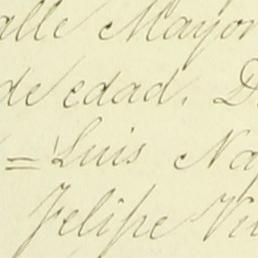 alle Mayor
de edad. D
= Luis Na
Felipe Vi